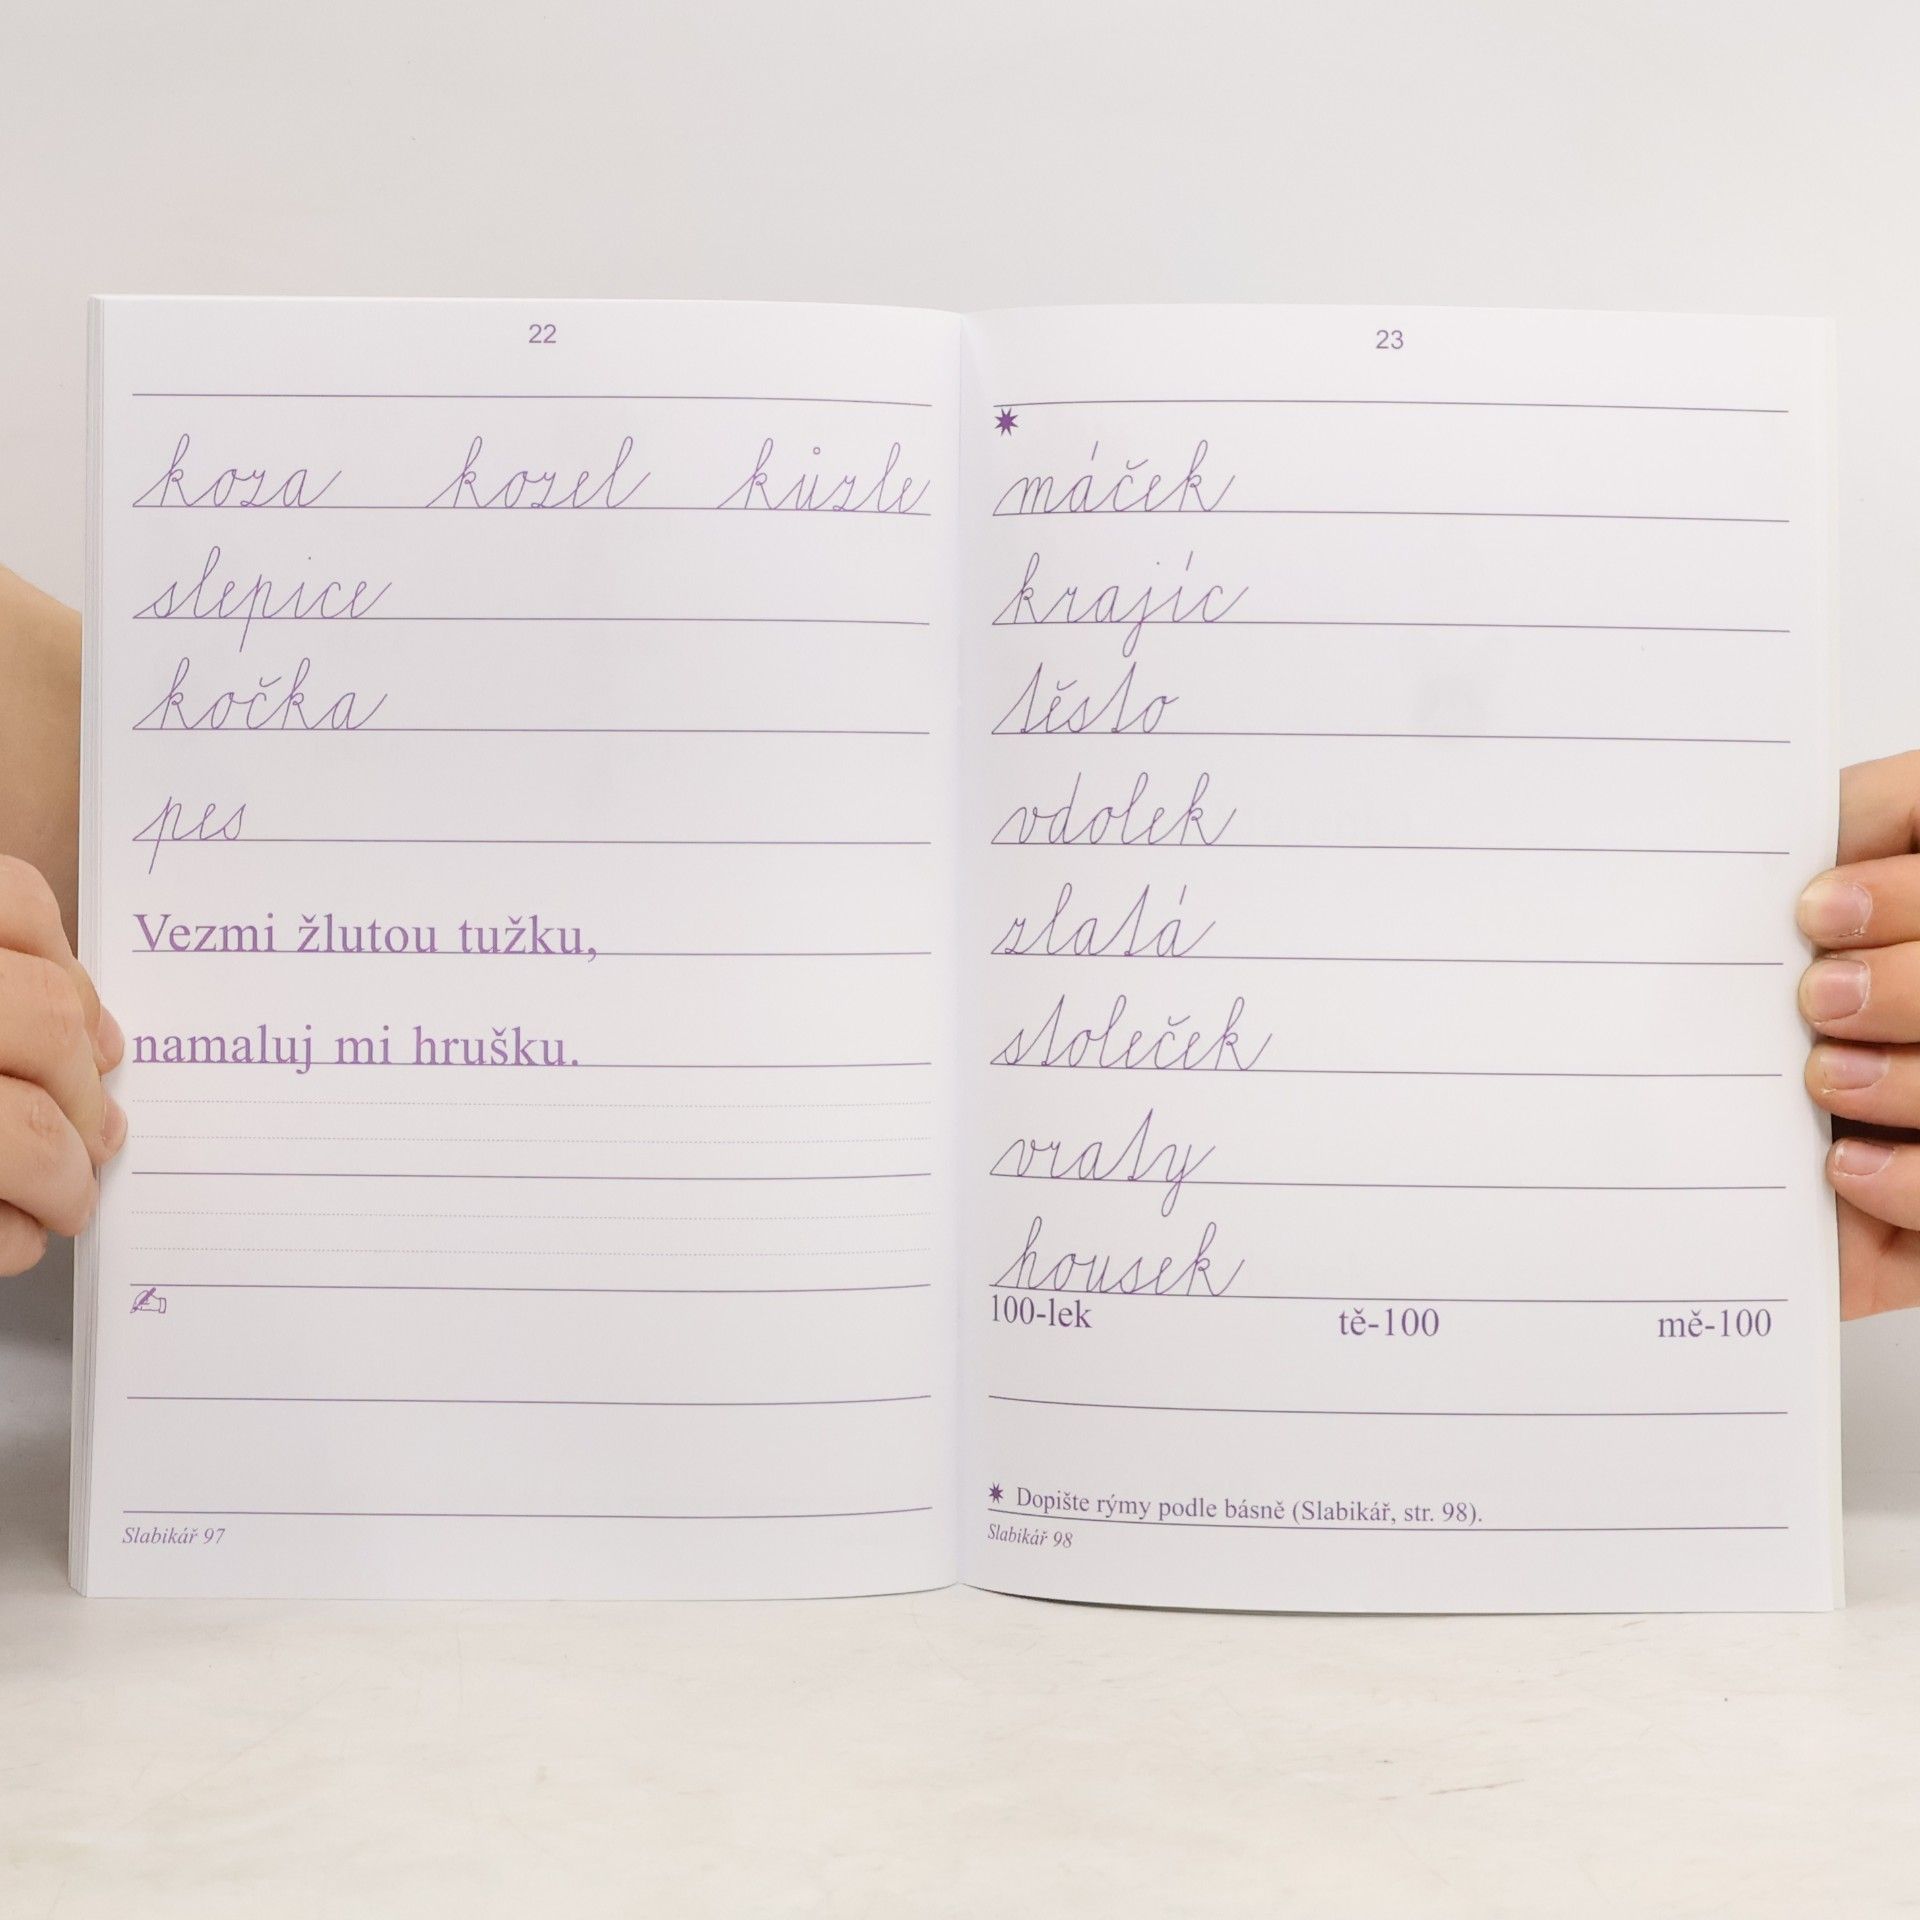 22
koza kozel kůzle
slepice
kočka
pes
Vezmi žlutou tužku,
namaluj mi hrušku.
Slabikář 97
23
máček
krajíc
těsto
vdolek
zlatá
stoleček
vraty
housek
100-lek tě-100 mě-100
Dopište rýmy podle básně (Slabikář, str. 98).
Slabikář 98